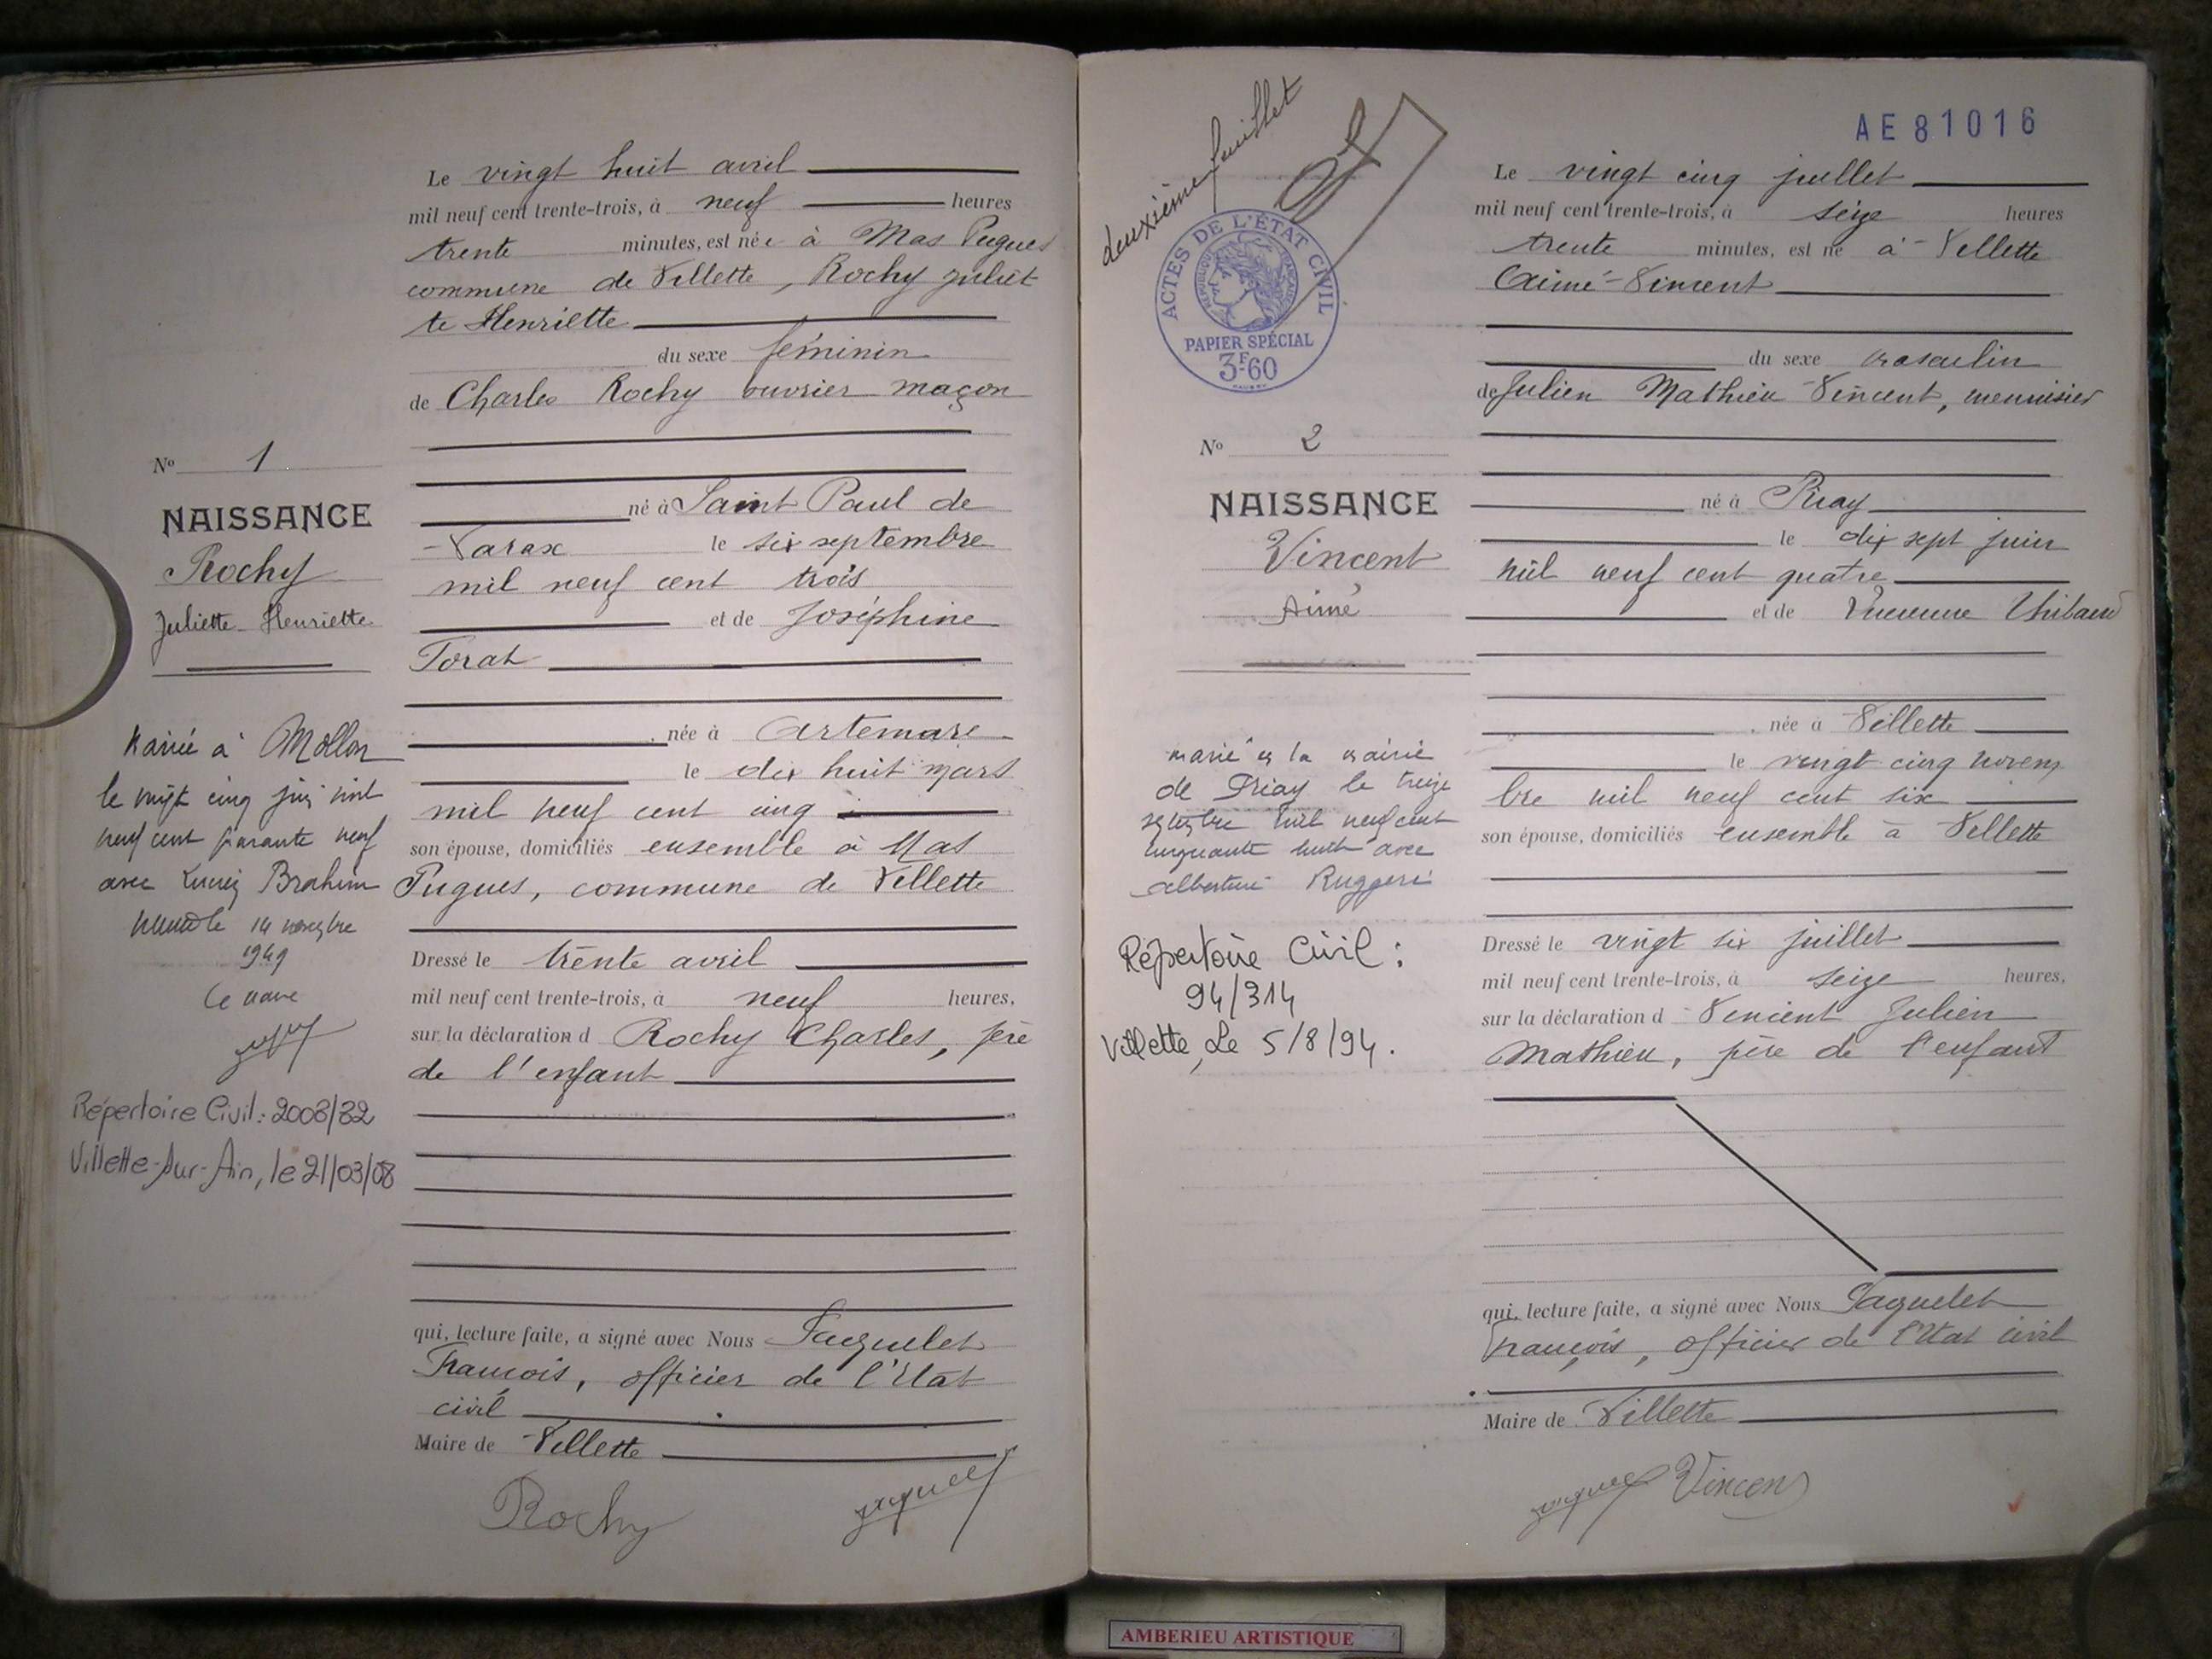 Le vingt huit avril
mil neuf cent trente-trois, à neuf heures
trente minutes, est née à Mas Pugues
commune de Villette, Rochy Juliet
te Henriette
du sexe féminin
de Charles Rochy ouvrier maçon
No 1
NAISSANCE
Rochy
Juliette Henriette
né à Saint Paul de
Varax le six septembre
mil neuf cent trois
et de Joséphine
Torat
née à Artemare
le dix huit mars
mil neuf cent cinq
son épouse, domiciliés ensemble à Mas
Pugues, commune de Villette
Mariée à Mollon
le vingt cinq juin mil
neuf cent quarante neuf
avec Brahim
le 14 novembre
1949
Le maire
Répertoire Civil : 2008/32
Villette-sur-Ain, le 21/03/08
Dressé le trente avril
mil neuf cent trente-trois, à neuf heures,
sur la déclaration d Rochy Charles, père
de l'enfant
qui, lecture faite, a signé avec Nous Jaquelet
François, officier de l'Etat
civil
Maire de Villette
Rochy
deuxième feuillet
ACTES DE L'ÉTAT CIVIL
RÉPUBLIQUE FRANÇAISE
PAPIER SPÉCIAL
3F60
AE81016
Le vingt cinq juillet
mil neuf cent trente-trois, à seize heures
trente minutes, est né à Villette
Aimé Vincent
du sexe masculin
de Julien Mathieu Vincent, menuisier
No 2
NAISSANCE
Vincent
Aimé
né à Priay
le dix sept juin
mil neuf cent quatre
et de Thibaud
née à Villette
le vingt cinq novem
bre mil neuf cent six
son épouse, domiciliés ensemble à Villette
marié à la mairie
de Priay le treize
septembre mil neuf cent
cinquante huit avec
Albertine Ruggeri
Répertoire Civil :
94/314
Villette, le 5/8/94.
Dressé le vingt six juillet
mil neuf cent trente-trois, à seize heures,
sur la déclaration d Vincent Julien
Mathieu, père de l'enfant
qui, lecture faite, a signé avec Nous Jaquelet
François, officier de l'Etat civil
Maire de Villette
Vincent
AMBERIEU ARTISTIQUE